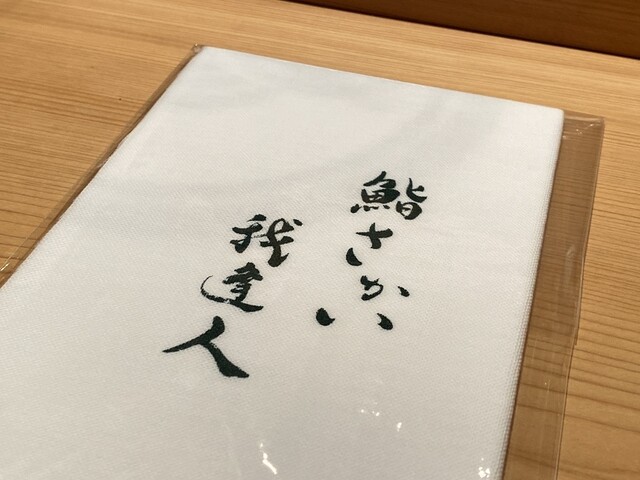 鮨さかい
我達人